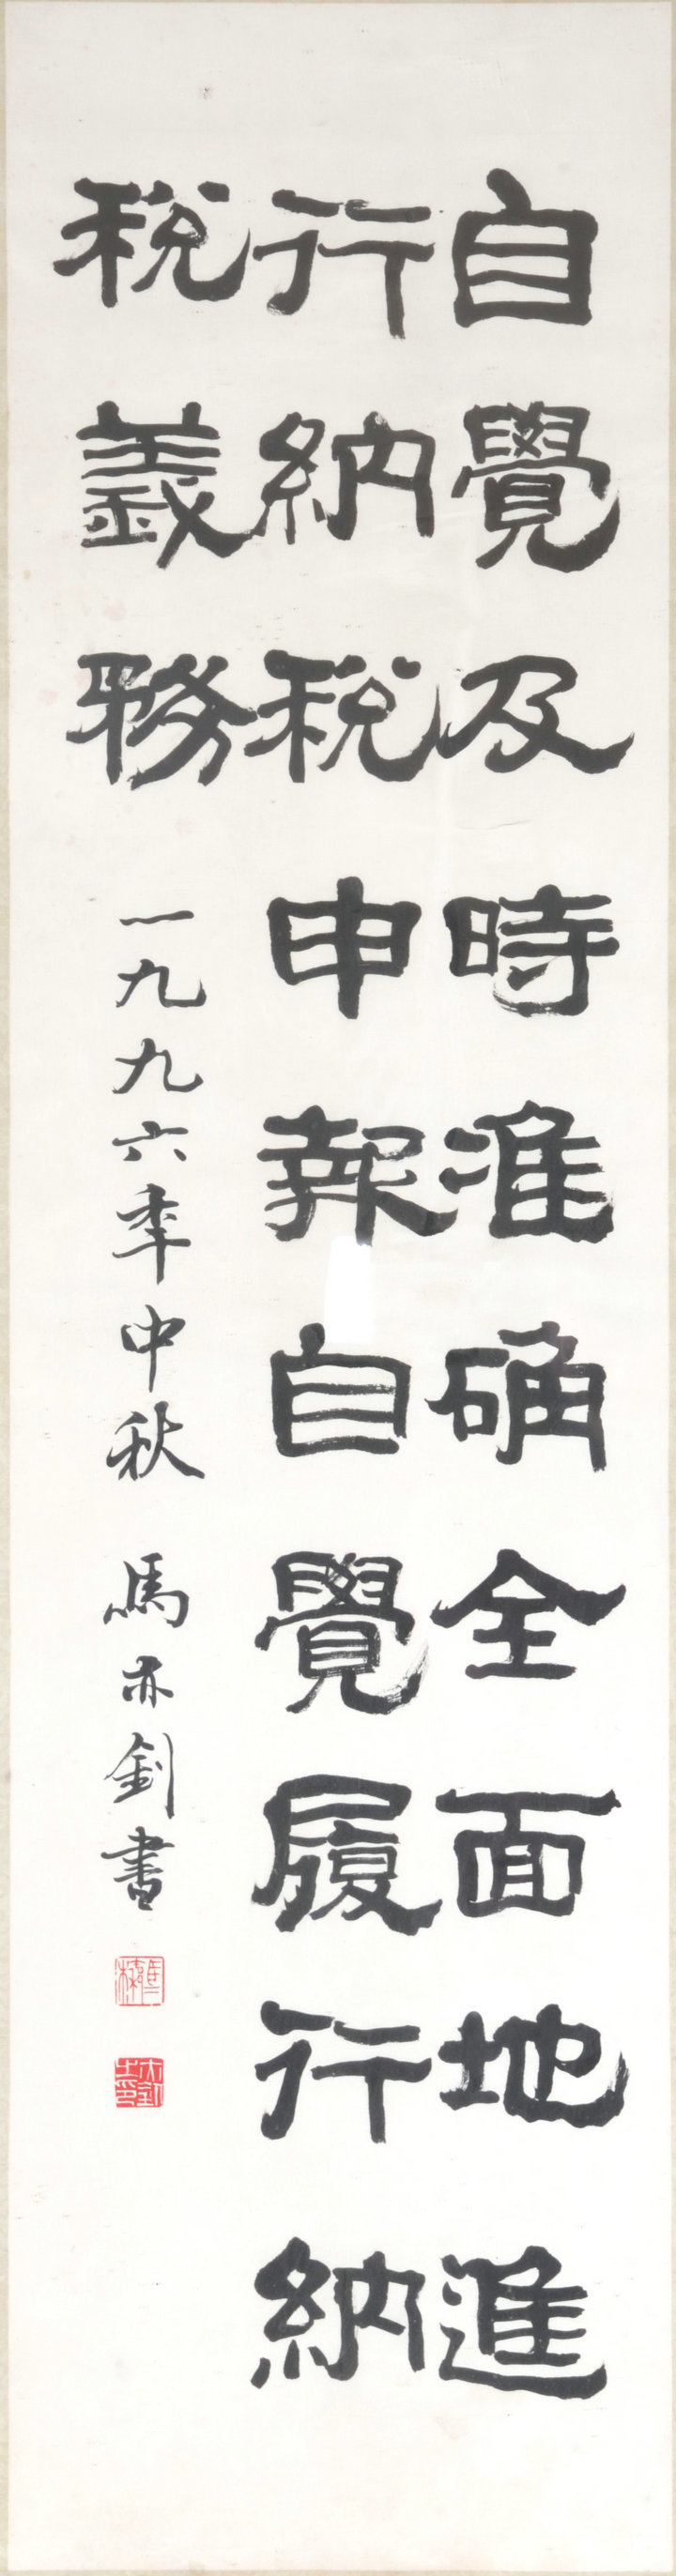 自覺及時准确全面地進
行納税申報自覺履行納
税義務
一九九六年中秋 馬亦釗書